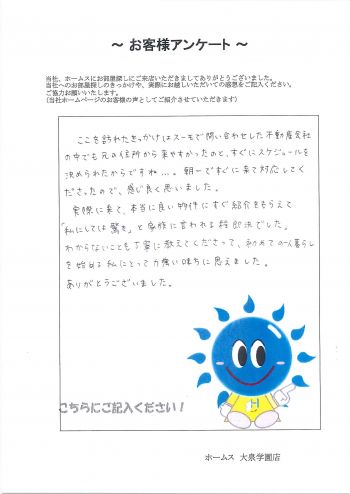 ～ お客様アンケート ～
当社、ホームスにお部屋探しにご来店いただきましてありがとうございました。
当社へのお部屋探しのきっかけや、実際にお越しいただいての感想をご記入ください。
ご協力お願いいたします。
（当社ホームページのお客様の声としてご紹介させていただきます）
ここを訪れたきっかけはスーモで問い合わせした不動産会社
の中でも元の住所から来やすかったのと、すぐにスケジュールを
決められたからですね…。朝一ですぐに来て対応してく
ださったので、感じ良く思いました。
実際に来て、本当に良い物件にすぐ紹介をもらえて
「私にしては驚き」と家族に言われる程即決でした。
わからないことも丁寧に教えてくださって、初めての一人暮らし
を始める私にとって力強い味方に思えました。
ありがとうございました。
H
こちらにご記入ください！
ホームス 大泉学園店